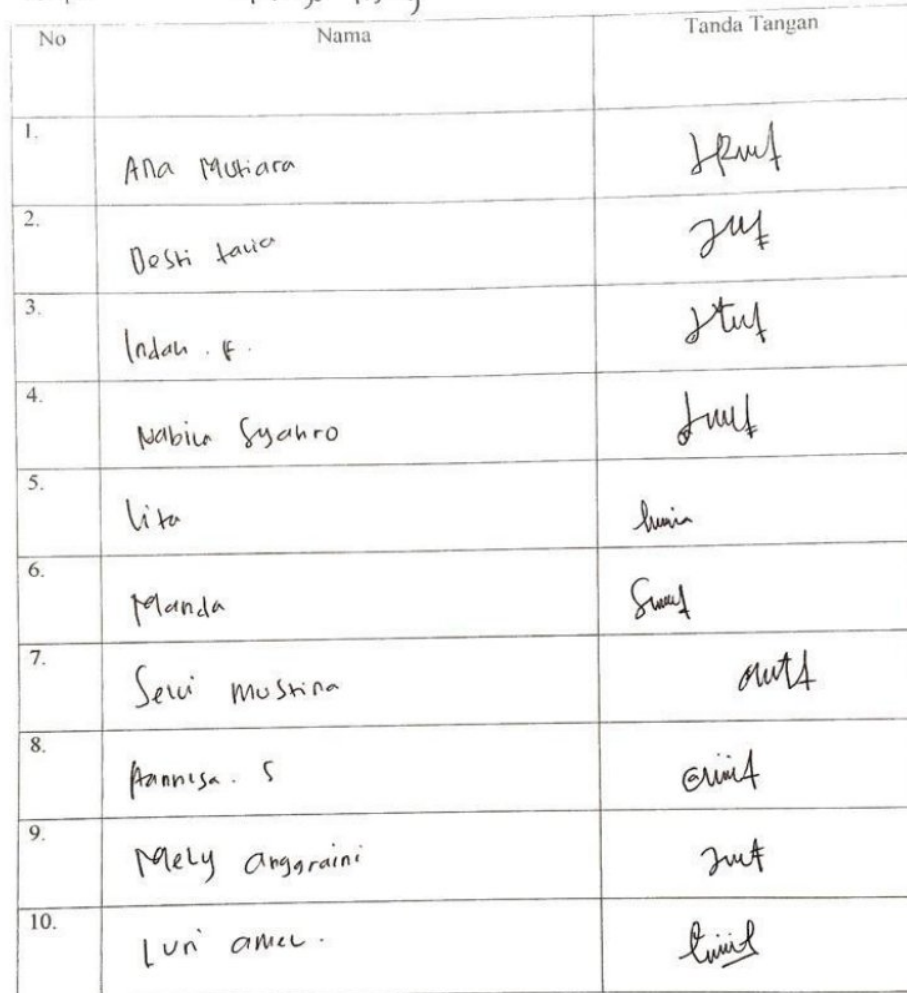 No Nama Tanda Tangan
1. Ana Mutiara
2. Desti tavia
3. Indah . F.
4. Nabila Syahro
5. Lita
6. Manda
7. Selvi mustina
8. Aannisa . S
9. Mely anggraini
10. Luri amel .